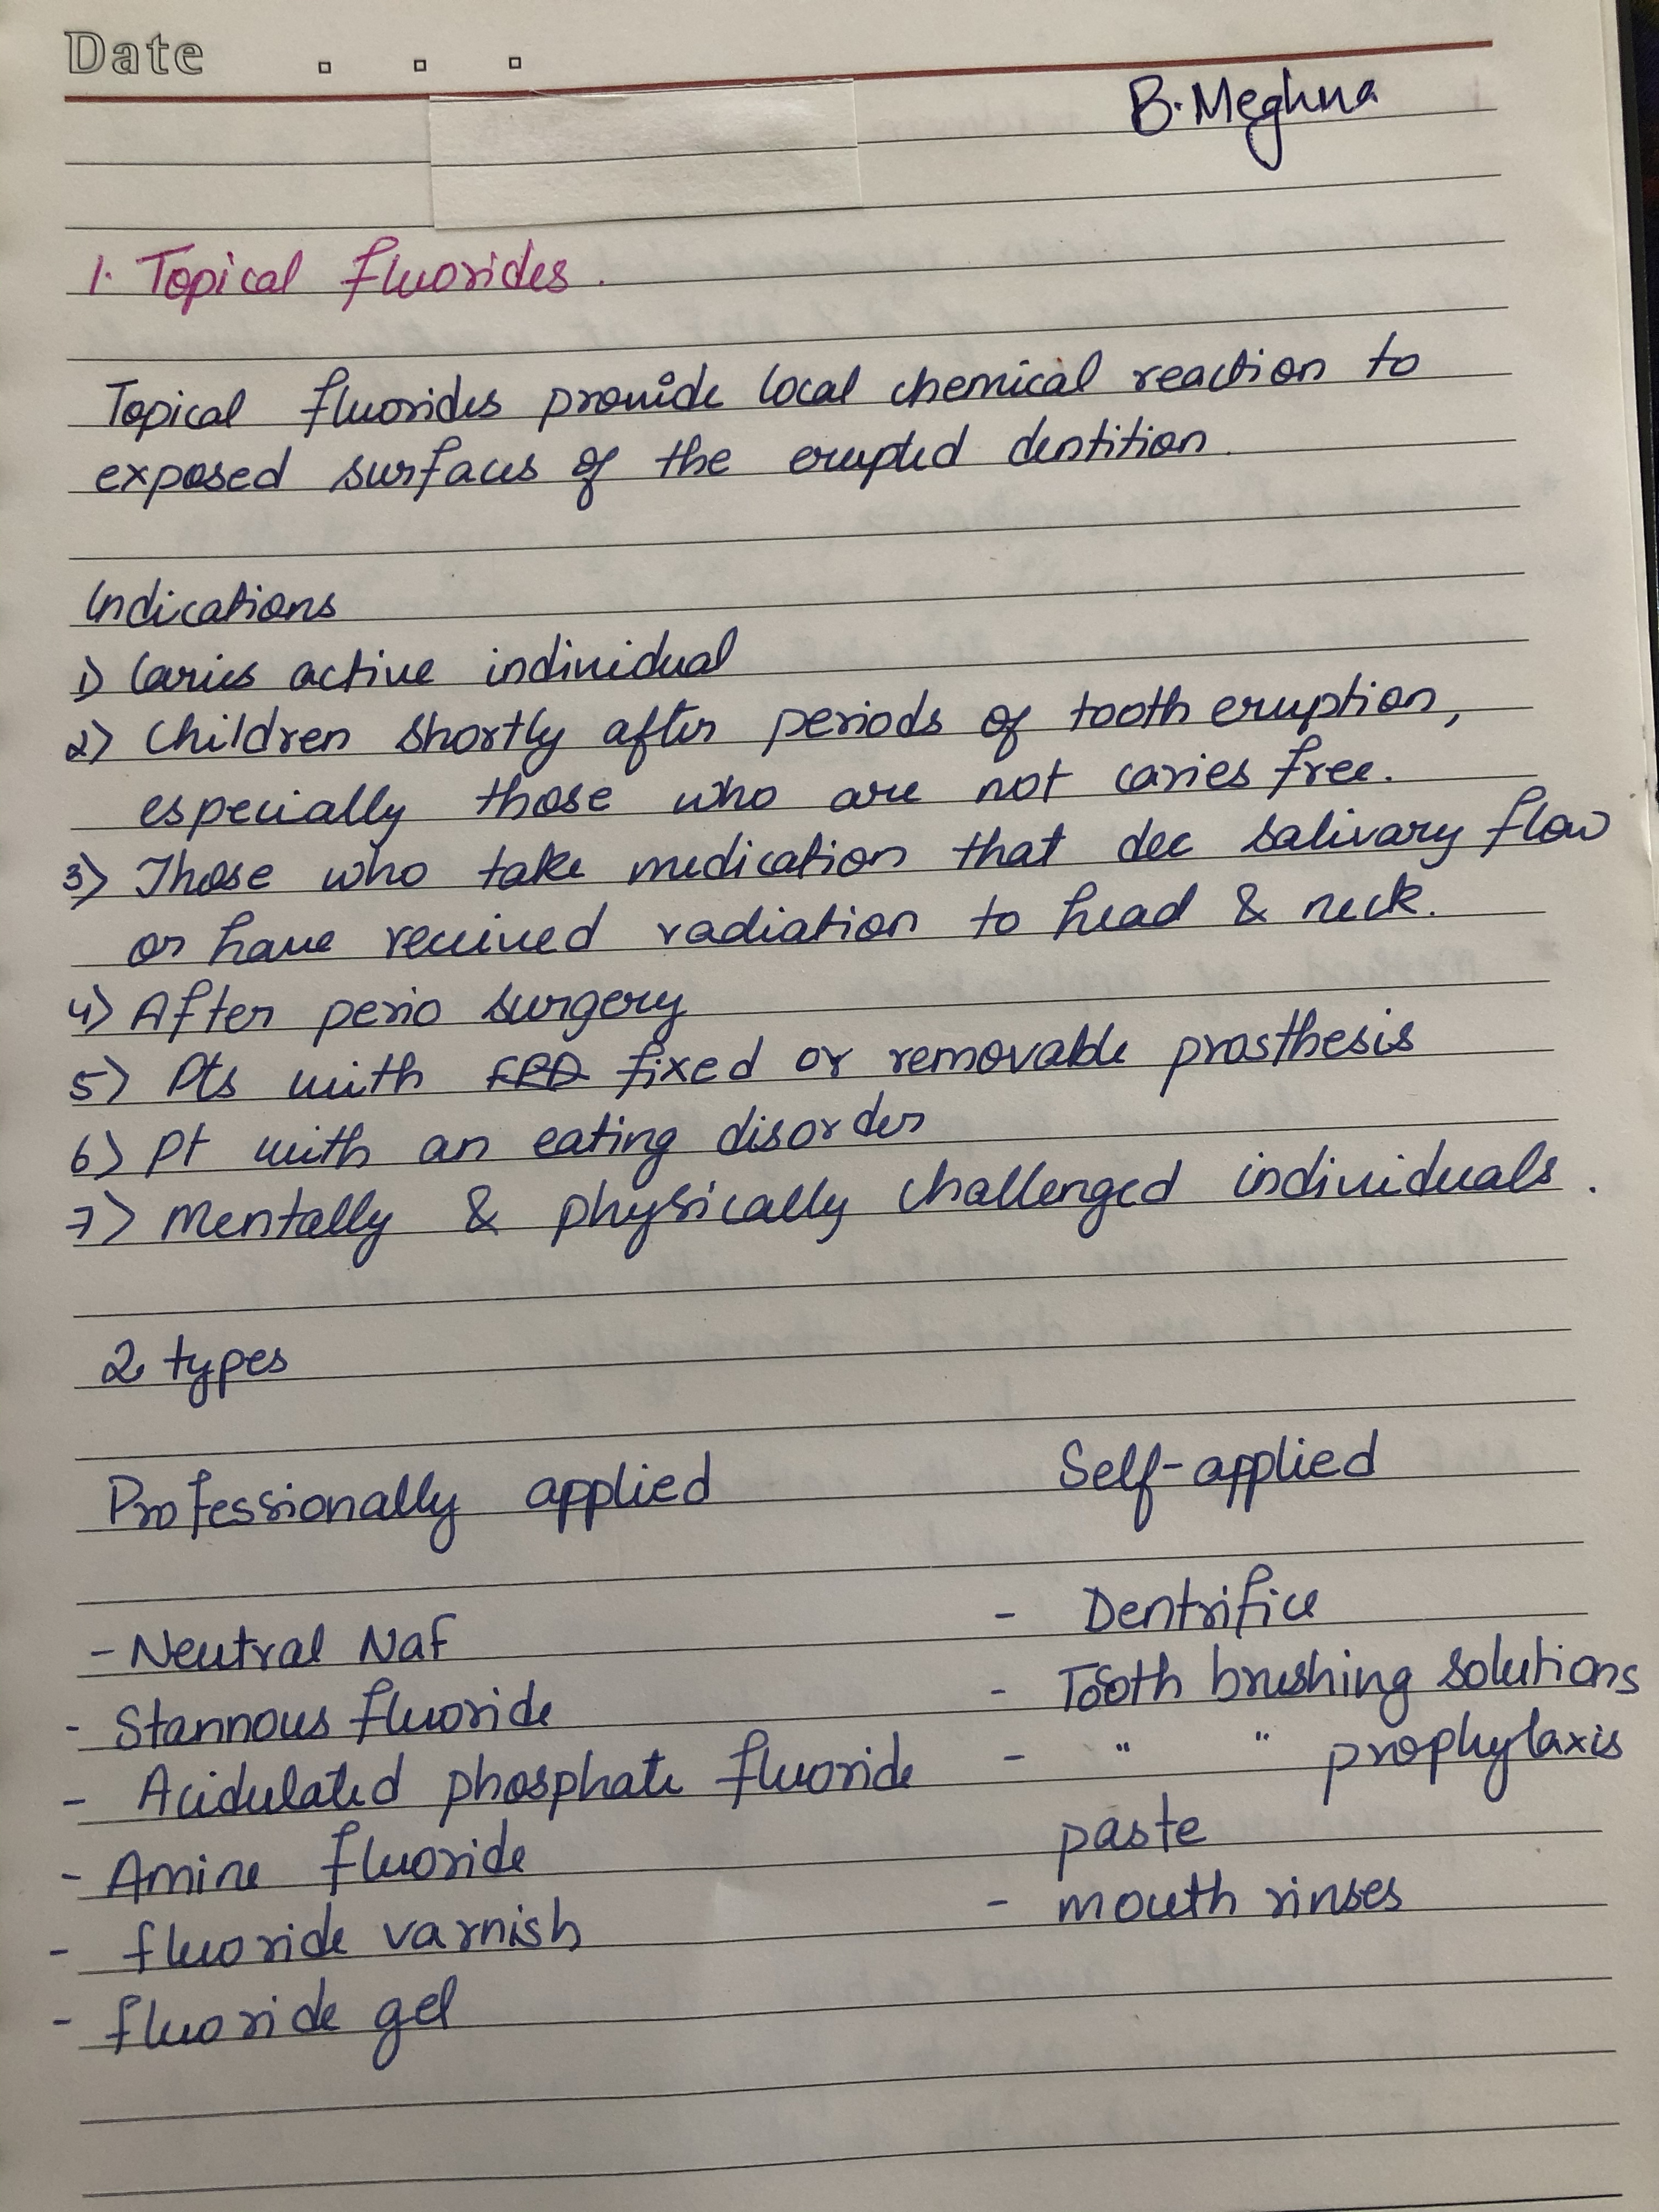 Date
B. Meghna
1. Topical fluorides.
Topical fluorides provide local chemical reaction to
exposed surfaces of the erupted dentition.
Indications
1) Caries active individual
2) Children shortly after periods of tooth eruption,
especially those who are not caries free.
3) Those who take medication that dec salivary flow
or have received radiation to head & neck.
4) After perio surgery
5) Pts with FPD fixed or removable prosthesis
6) Pt with an eating disorder
7) Mentally & physically challenged individuals.
2 types
Professionally applied Self-applied
- Neutral NaF - Dentrifice
- Stannous fluoride - Tooth brushing solutions
- Acidulated phosphate fluoride - " " prophylaxis
- Amine fluoride paste
- fluoride varnish - mouth rinses
- fluoride gel